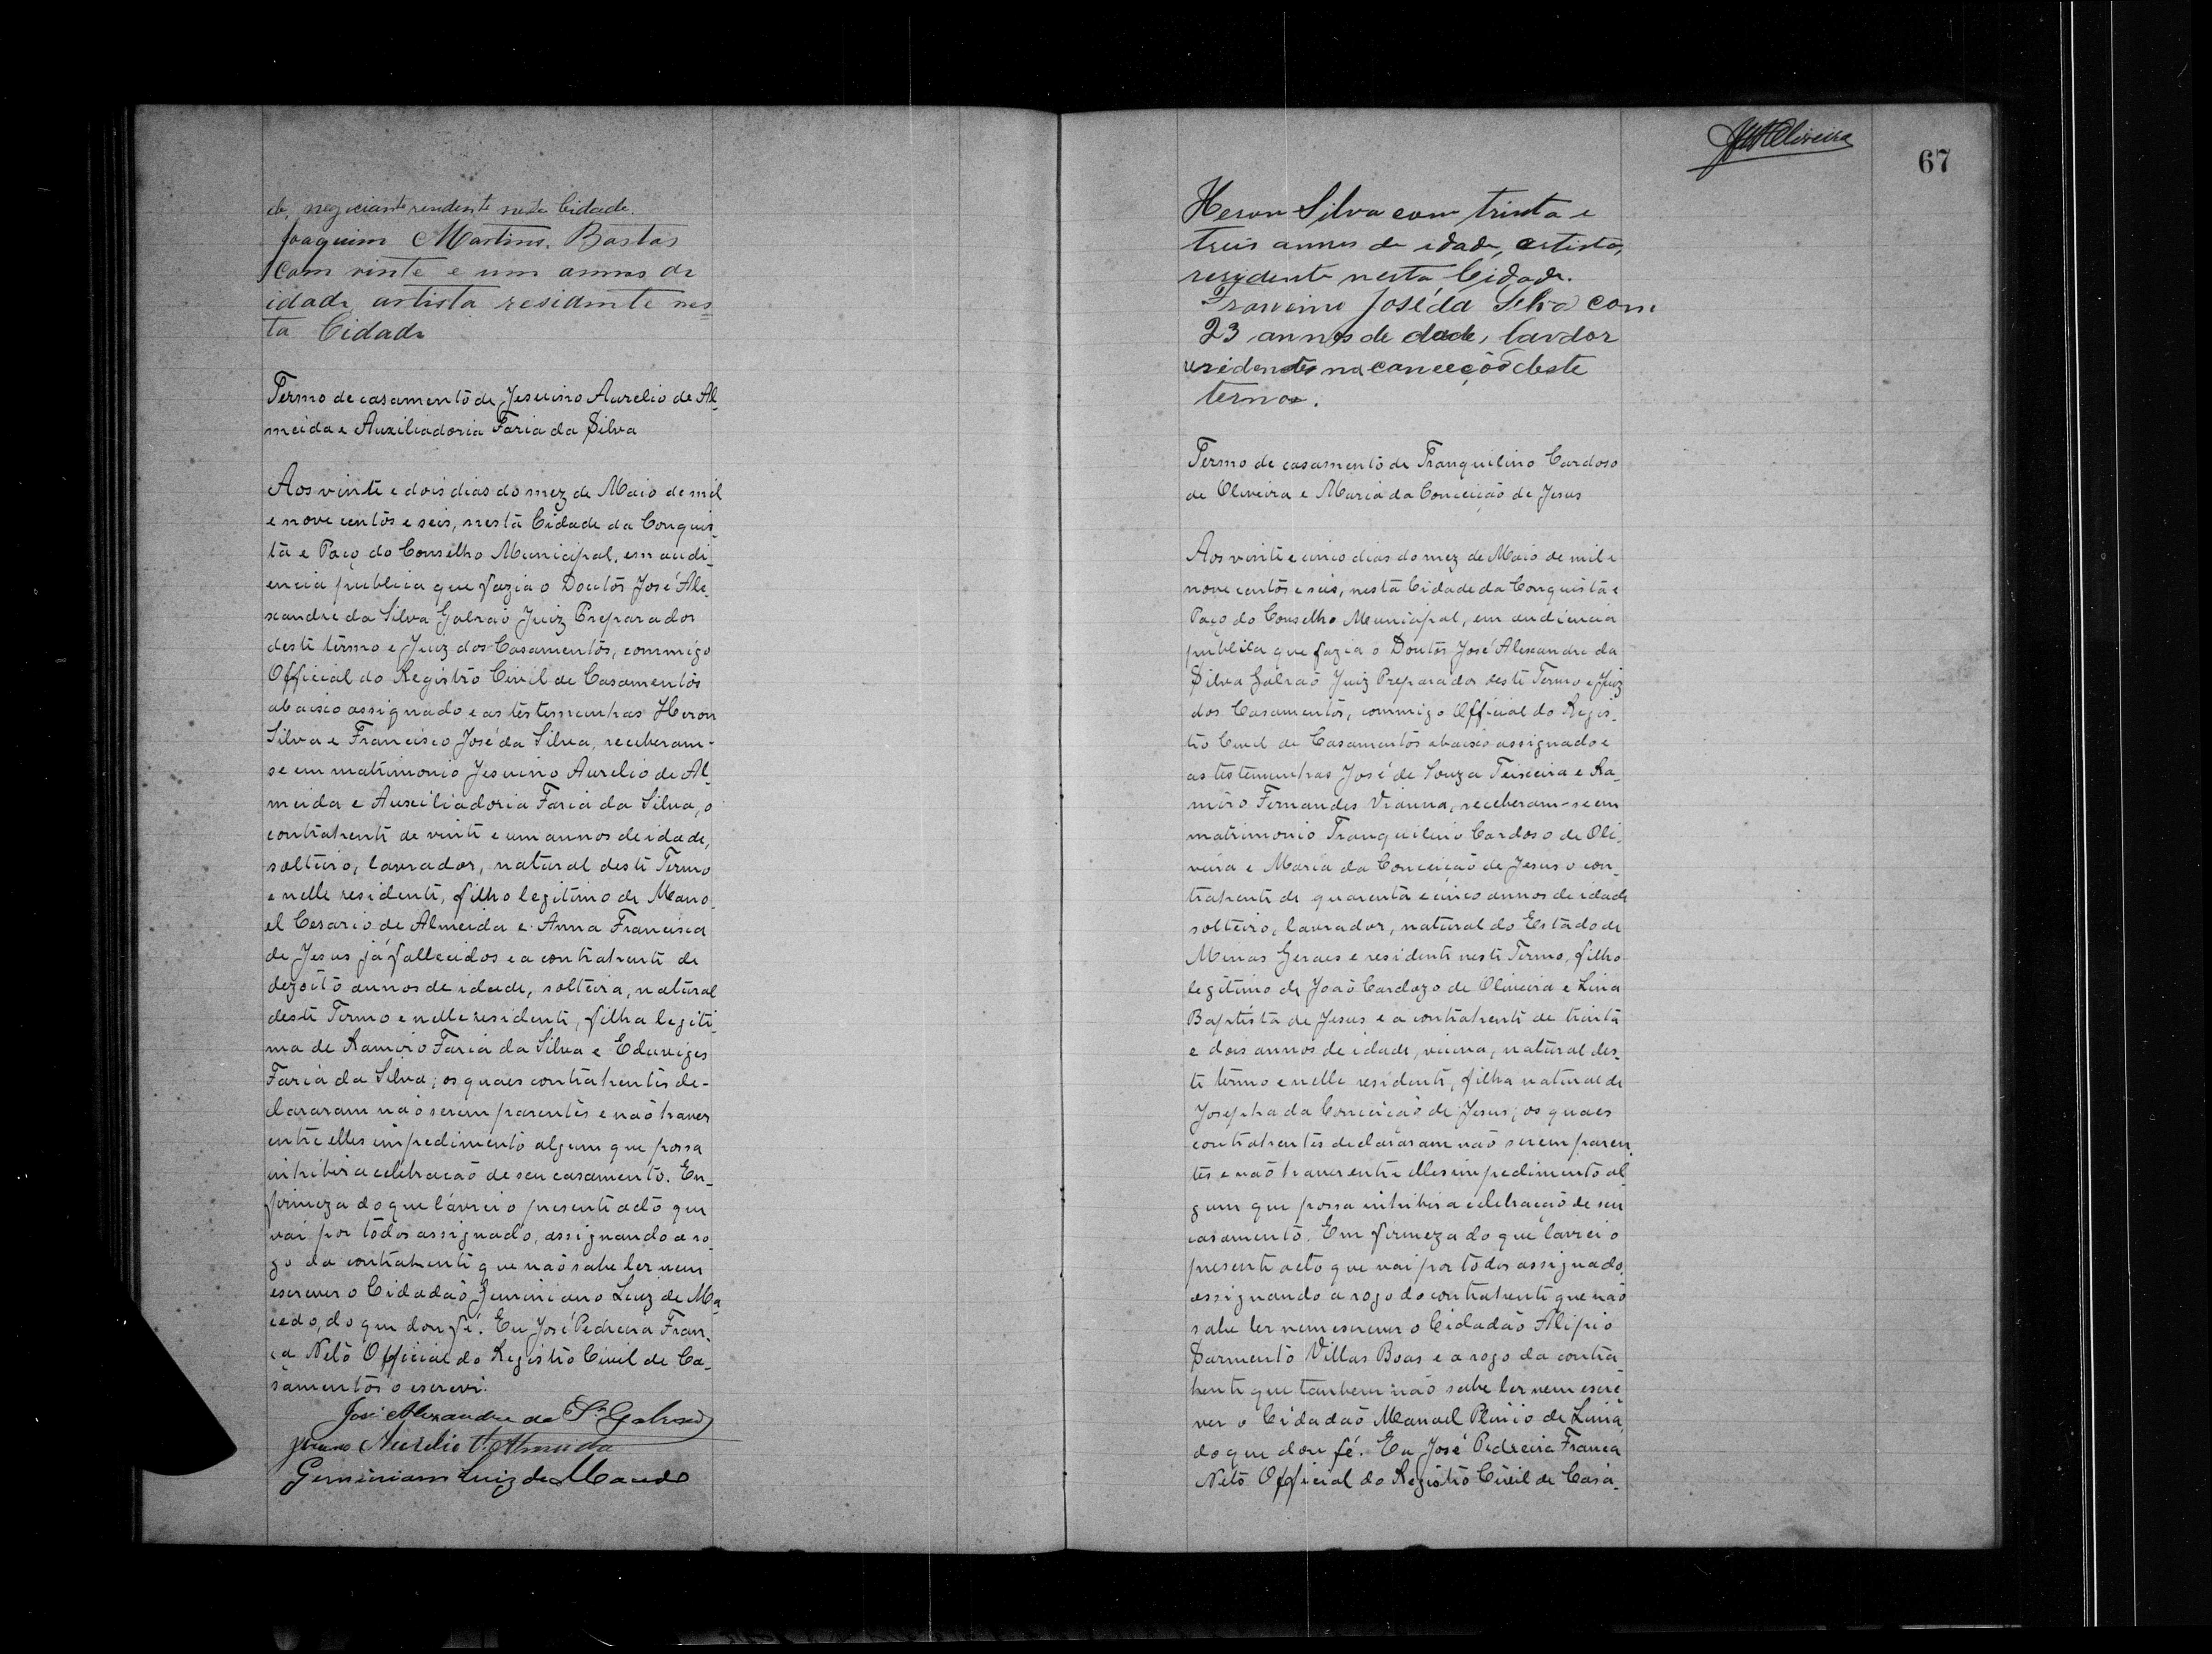 de, negociante residente nesta Cidade.
Joaquim Martins Bastos
com vinte e um annos de
idade artista residente nes-
ta Cidade
Termo de casamento de Jesuino Aurelio de Al-
meida e Auxiliadoria Faria da Silva
Aos vinte e dois dias do mez de Maio de mil
e nove centos e seis, nesta Cidade da Conquis-
ta e Paço do Conselho Municipal, em audi-
encia publica que fazia o Doutor José Ale-
xandre da Silva Galvaõ Juiz Preparador
deste termo e Juiz dos Casamentos, commigo
Official do Registro Civil de Casamentos
abaixo assignado e as testemunhas Heron
Silva e Francisco José da Silva, receberam-
se em matrimonio Jesuino Aurelio de Al-
meida e Auxiliadoria Faria da Silva, o
contrahente de vinte e um annos de idade,
solteiro, lavrador, natural deste Termo
e nelle residente, filho legitimo de Mano-
el Cesario de Almeida e Anna Francisca
de Jesus já fallecidos e a contrahente de
dezoito annos de idade, solteira, natural
deste Termo e nelle residente, filha legiti-
ma de Ramiro Faria da Silva e Eduviges
Faria da Silva; os quaes contrahentes de-
clararam naõ serem parentes e naõ haver
entre elles impedimento algum que possa
inhibir a celebracaõ de seu casamento. Em
firmeza do que lavrei o presente acto que
vai por todos assignado, assignando a ro-
go da contrahente que naõ sabe ler nem
escrever o Cidadaõ Geminiano Luiz de Ma-
cedo, do que dou fé. Eu José Pedreira Fran-
ca Neto Official do Registro Civil de Ca-
samentos o escrevi.
José Alexandre da Sª Galvaõ
Jesuino Aurelio d'Almeida
Geminiano Luiz de Macedo
67
Heron Silva com trinta e
treis annos de idade, artista,
residente nesta Cidade.
José da Silva com
23 annos de dade, lavdor
residentes na conceeçõ deste
termo.
Termo de casamento de Tranquilino Cardoso
de Oliveira e Maria da Conceiçaõ de Jesus
Aos vinte e cinco dias do mez de Maio de mil e
nove centos e seis, nesta Cidade da Conquista e
Paço do Conselho Municipal, em audiencia
publica que fazia o Doutor José Alexandre da
Silva Galvaõ Juiz Preparador deste Termo e Juiz
dos Casamentos, commigo Official do Regis-
tro Civil de Casamentos abaixo assignado e
as testemunhas José de Souza Teixeira e Ra-
miro Fernandes Vianna, receberam-se em
matrimonio Tranquilino Cardoso de Oli-
veira e Maria da Conceiçaõ de Jesus o con-
trahente de quarenta e cinco annos de idade
solteiro, lavrador, natural do Estado de
Minas Geraes e residente neste Termo, filho
legitimo de Joaõ Cardozo de Oliveira e Lina
Baptista de Jesus e a contrahente de trinta
e dois annos de idade, viuva, natural des-
te termo e nelle residente, filha natural de
Josepha da Conceiçaõ de Jesus; os quaes
contrahentes declararam naõ serem paren-
tes e naõ haver entre elles impedimento al-
gum que possa inhibir a celebraçaõ de seu
casamento. Em firmeza do que lavrei o
presente acto que vai por todos assignado,
assignando a rogo do contrahente que naõ
sabe ler nem escrever o Cidadaõ Alipio
Sarmento Villas Boas e a rogo da contra-
hente que tambem naõ sabe ler nem escre-
ver o Cidadaõ Manoel Plinio de Lima
do que dou fé. Eu José Pedreira Franca
Neto Official do Registro Civil de Casa-